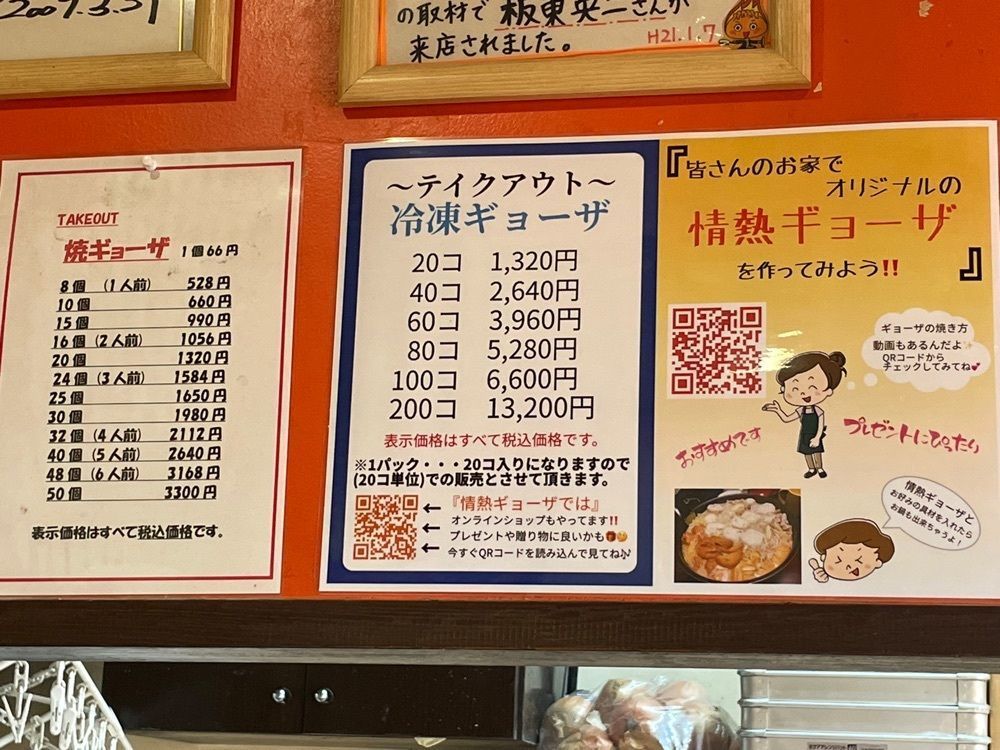 2009.3.31
の取材で 板東英二さんが
来店されました。
H21.1.7
TAKEOUT
焼ギョーザ 1個66円
8個 (1人前) 528円
10個 660円
15個 990円
16個 (2人前) 1056円
20個 1320円
24個 (3人前) 1584円
25個 1650円
30個 1980円
32個 (4人前) 2112円
40個 (5人前) 2640円
48個 (6人前) 3168円
50個 3300円
表示価格はすべて税込価格です。
～テイクアウト～
冷凍ギョーザ
20コ 1,320円
40コ 2,640円
60コ 3,960円
80コ 5,280円
100コ 6,600円
200コ 13,200円
表示価格はすべて税込価格です。
※1パック・・・20コ入りになりますので
(20コ単位)での販売とさせて頂きます。
← 『情熱ギョーザでは』
オンラインショップもやってます!!
← プレゼントや贈り物に良いかも🎁😊
← 今すぐQRコードを読み込んで見てね♪
『皆さんのお家で
オリジナルの
情熱ギョーザ
を作ってみよう!!』
ギョーザの焼き方
動画もあるんだよ✨
QRコードから
チェックしてみてね💕
おすすめです
プレゼントにぴったり
情熱ギョーザと
お好みの具材を入れたら
お鍋も出来ちゃうよ！